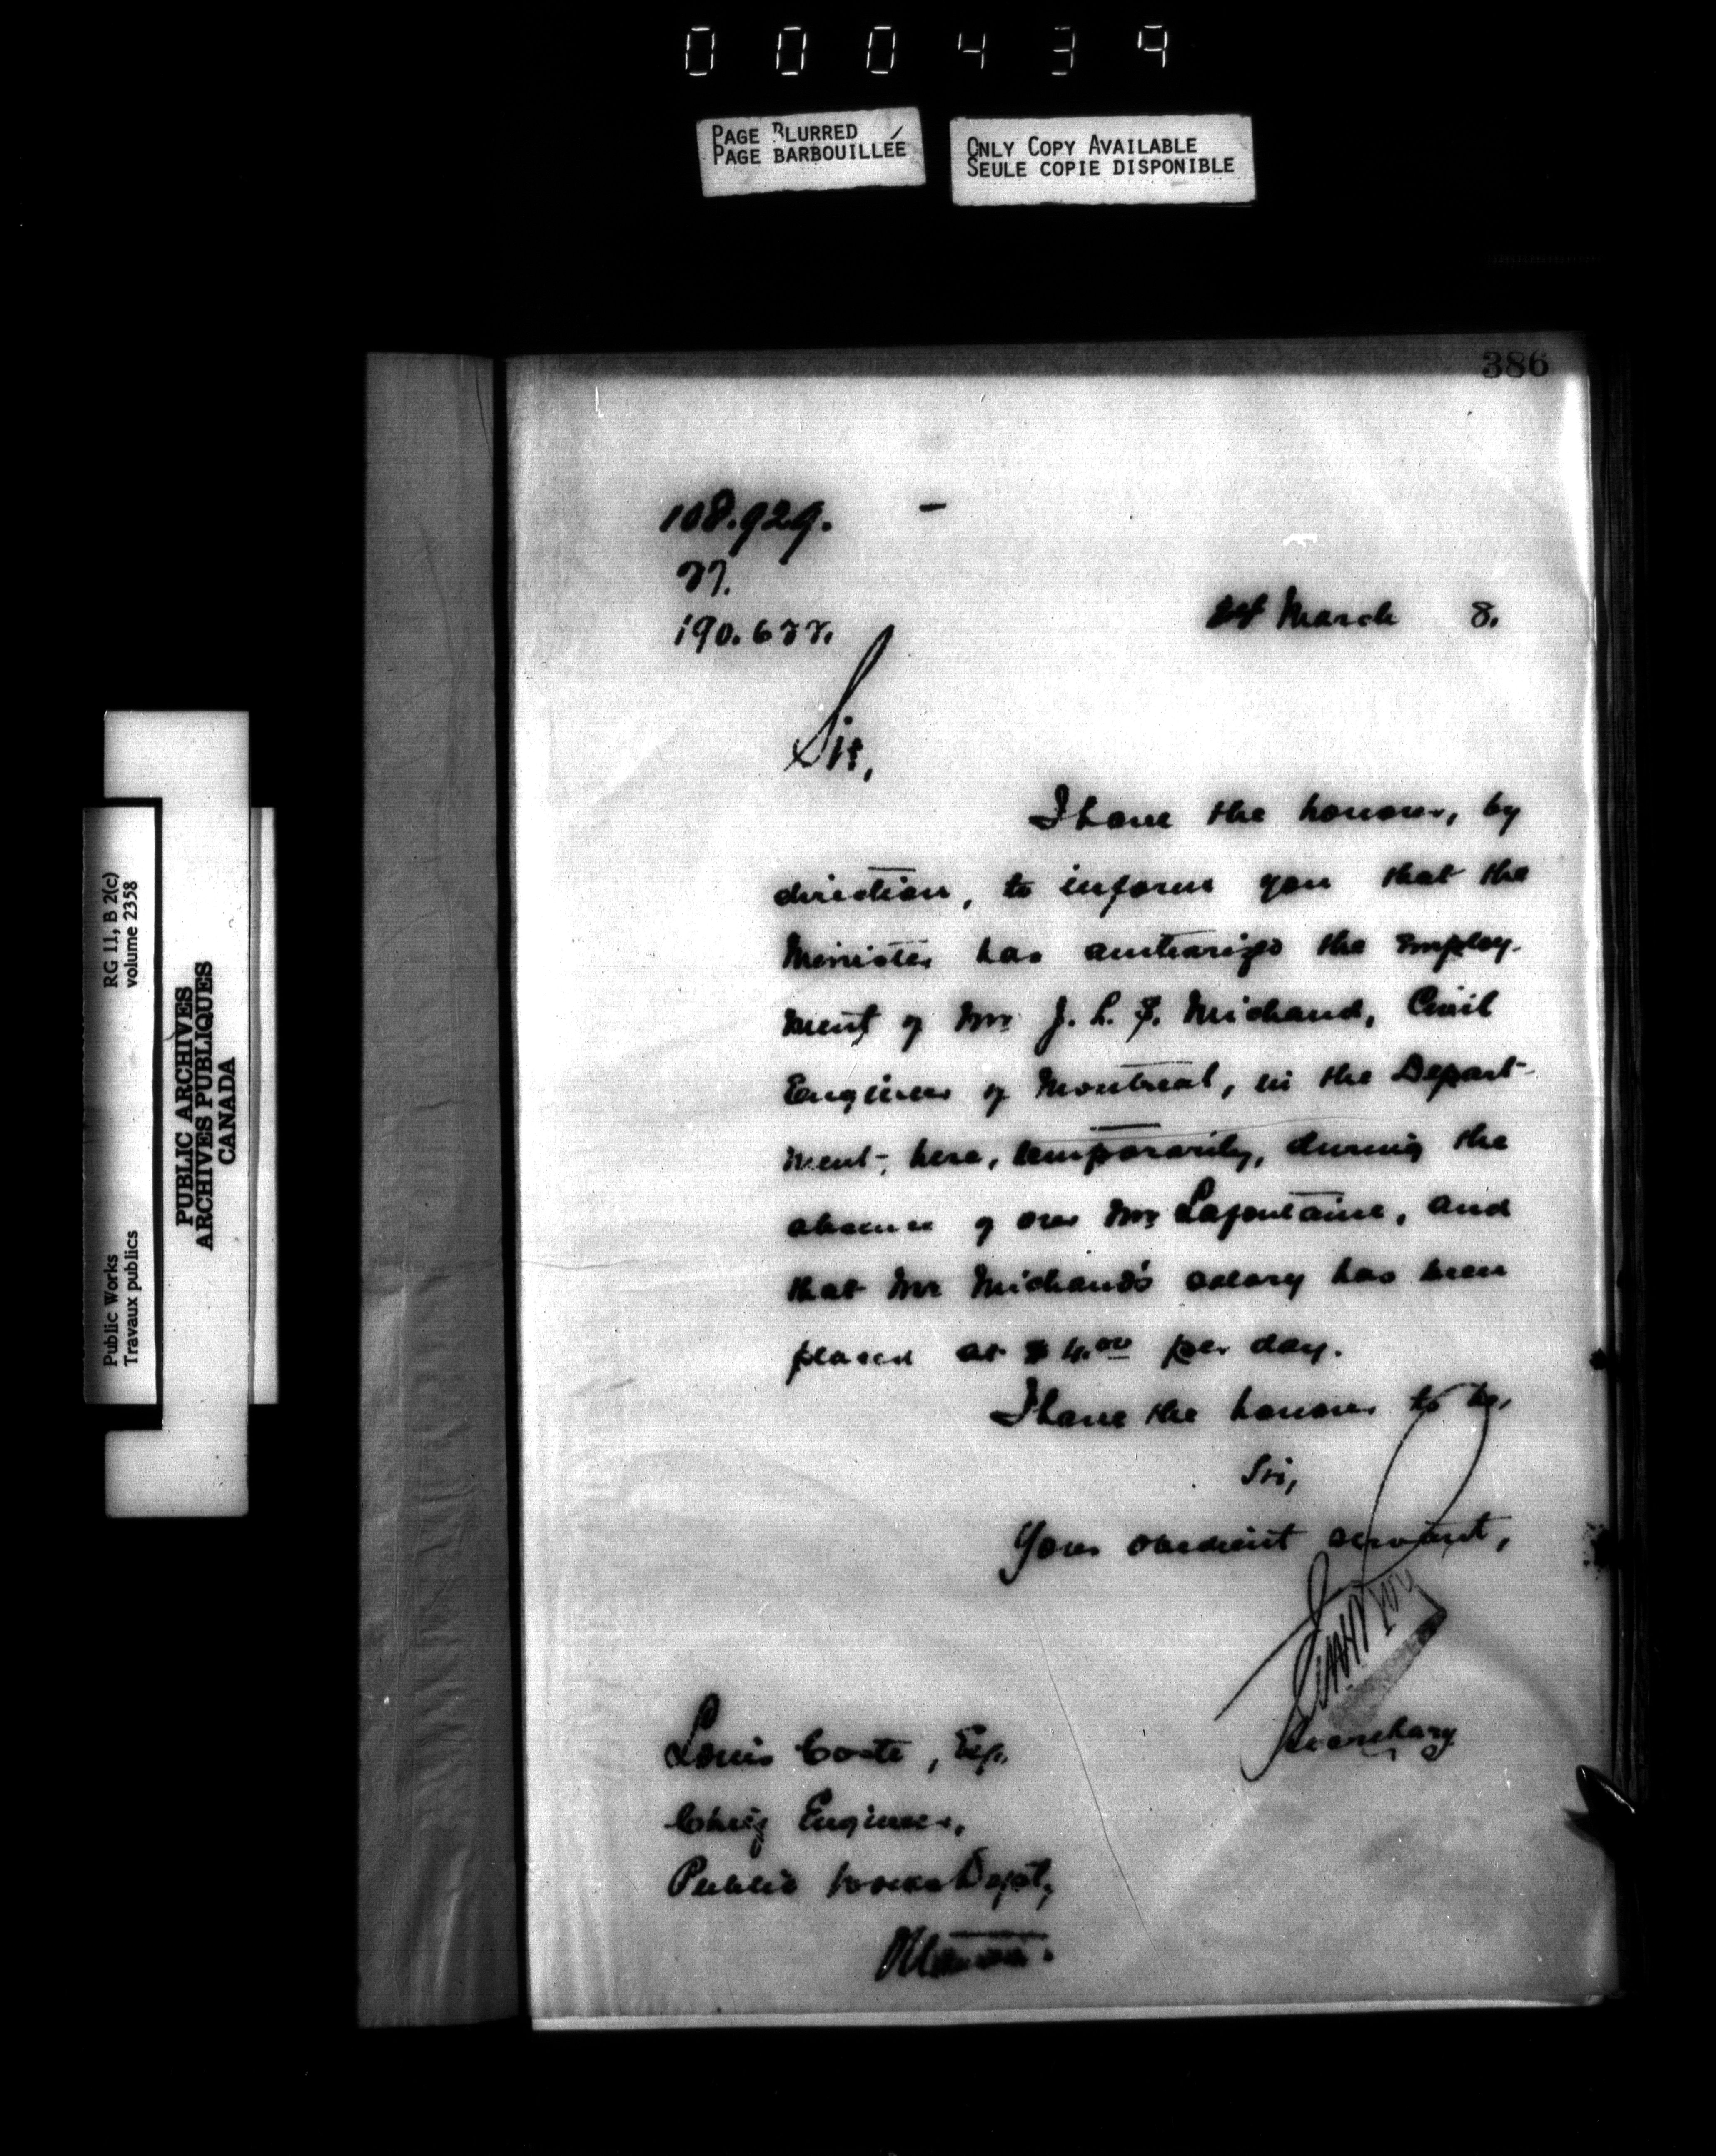 000439
PAGE BLURRED
PAGE BARBOUILLÉE
ONLY COPY AVAILABLE
SEULE COPIE DISPONIBLE
386
108.929.
27.
190.622.
24 March 8.
Sir,
I have the honour, by
direction, to inform you that the
Minister has authorized the employ-
ment of Mr J. L. Michaud, Civil
Engineer of Montreal, in the Depart-
ment, here, temporarily, during the
absence of over Mr Lafontaine, and
that Mr Michaud's salary has been
placed at $4.00 per day.
I have the honour to be,
Sir,
Your obedient servant,
Secretary
Louis Coste, Esq.
Chief Engineer,
Public Works Dept,
Ottawa.
Public Works RG 11, B 2(c)
Travaux publics volume 2358
PUBLIC ARCHIVES
ARCHIVES PUBLIQUES
CANADA